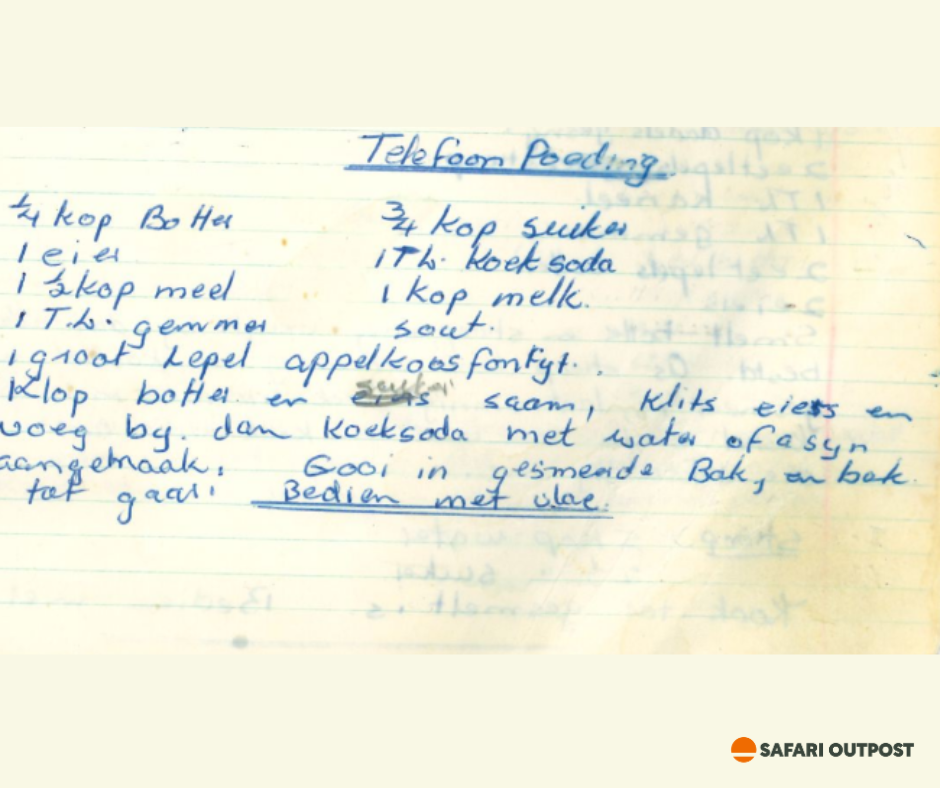 Telefoon Poeding.
1/4 kop Botter 3/4 kop suiker
1 eier 1 Th. Koeksoda
1 1/2 kop meel 1 kop melk.
1 T.h. gemmer sout.
1 groot Lepel appelkoos fonfyt.
Klop botter en suiker saam, klits eiers en
voeg by. dan koeksoda met water of asyn
aangemaak. Gooi in gesmeerde Bak, en bak
tot gaar. Bedien met vlae.
SAFARI OUTPOST